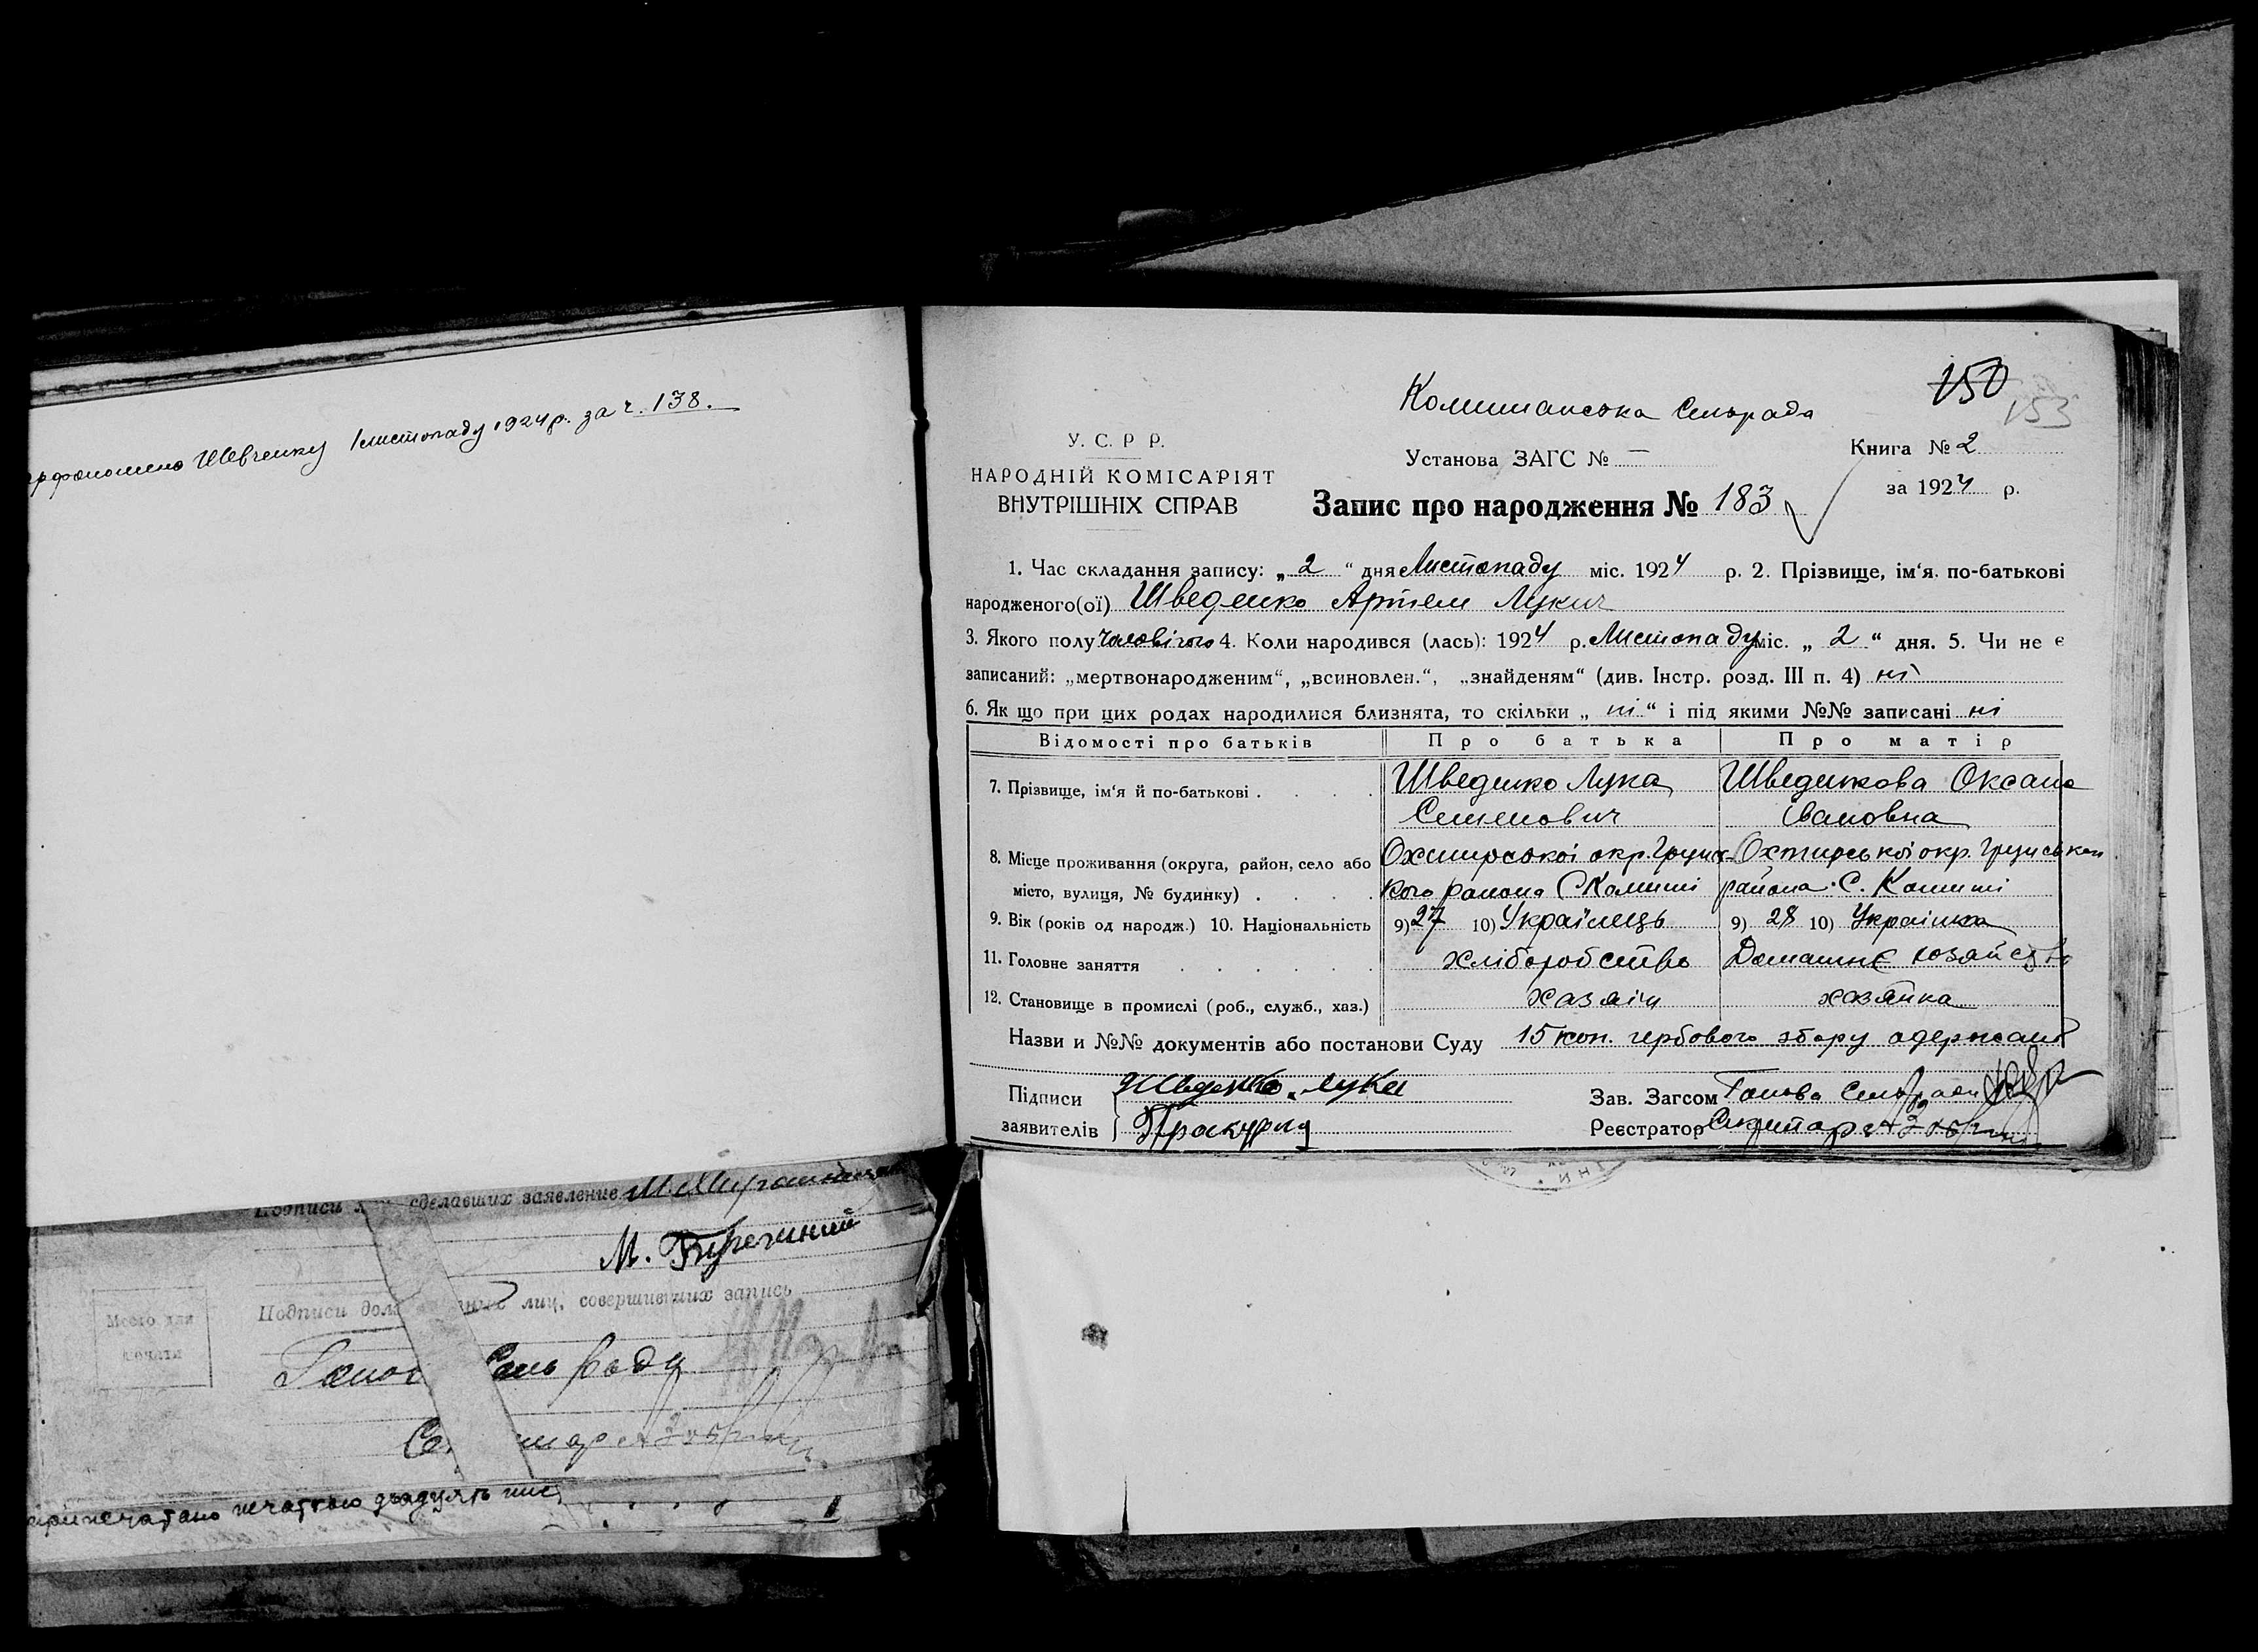 Шевченку 1 листопаду 1924 р. за ч. 138.
сделавших заявление
М.
Подписи лиц, совершивших запись
Место для
печати
Сель Раду
печаткою двадцять
Комишанська Сельрада
150
153
У. С. Р Р.
НАРОДНІЙ КОМІСАРІЯТ
ВНУТРІШНІХ СПРАВ
Установа ЗАГС № —
Книга № 2
за 1924 р.
Запис про народження № 183
1. Час складання запису: „ 2 “ дня Листопаду міс. 1924 р. 2. Прізвище, ім'я. по-батькові
народженого(ої) Шведенко Артем Лукич
3. Якого полу чоловічого 4. Коли народився (лась): 1924 р. Листопаду міс. „ 2 “ дня. 5. Чи не є
записаний: „мертвонародженим“, „всиновлен.“, „знайденям“ (див. Інстр. розд. III п. 4) ні
6. Як що при цих родах народилися близнята, то скільки „ ні “ і під якими №№ записані ні
Відомості про батьків Про батька Про матір
7. Прізвище, ім'я й по-батькові . . . . Шведенко Лука Шведенкова Оксана
Семенович Івановна
8. Місце проживання (округа, район, село або Охтирської окр. Грунсь- Охтирської окр. Грунськог
місто, вулиця, № будинку) . . . . кого района С Комиші района С. Комиші
9. Вік (років од народж.) 10. Національність 9) 27 10) Українець 9) 28 10) Українка
11. Головне заняття . . . . . . хліборобство Домашнє хозяйство
12. Становище в промислі (роб., служб., хаз.) хазяін хазяйка
Назви и №№ документів або постанови Суду 15 коп. гербового збору одержано
Підписи Шведенко Лука Зав. Загсом Голова Сельради
заявителів Прокурга Реєстратор Секретарь